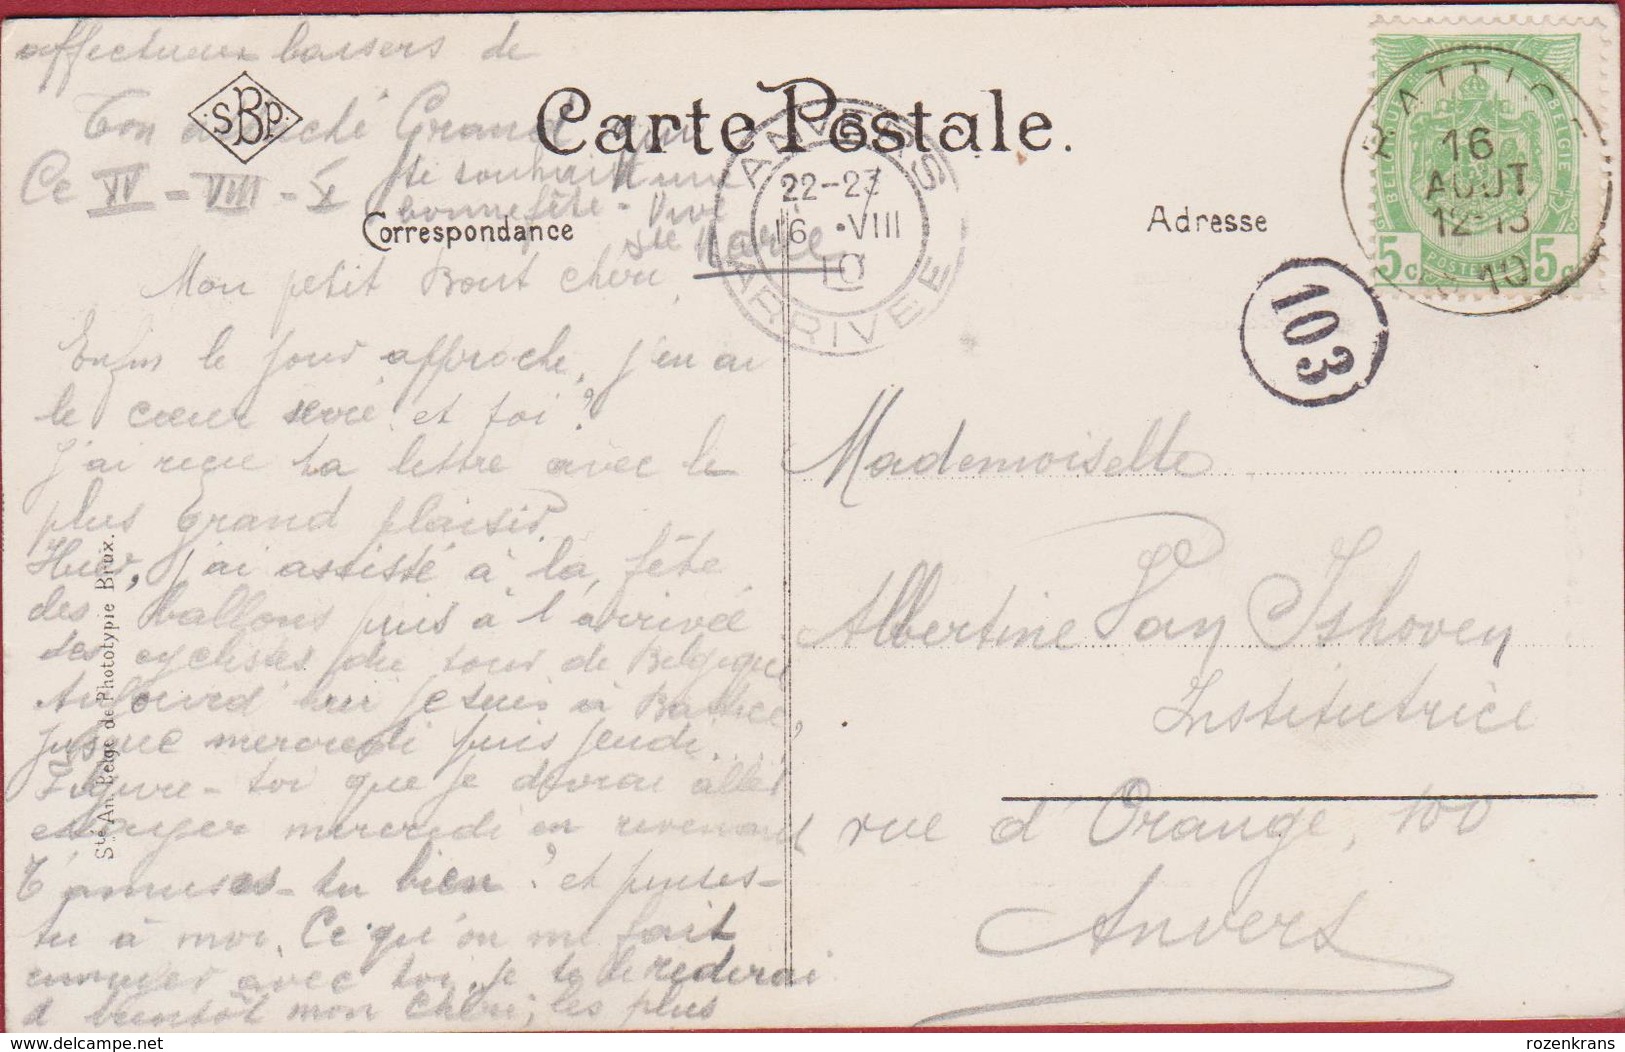 affectueux baisers de
Ton attaché Grand
Ce IV - VIII - X
te souhait une
bonne fête - Vive
Ste Marie
SBP
Carte Postale.
Correspondance
Adresse
Mon petit Bout chéri,
Enfin le jour approche, j'en ai
le cœur serré, et toi ?
J'ai reçu ta lettre avec le
plus grand plaisir.
Hier, j'ai assisté à la fête
des ballons puis à l'arrivée
des cyclistes du tour de Belgique
Aujourd'hui je suis à Battice,
jusque mercredi puis jeudi.
Figure-toi que je devrai aller
essayer mercredi en revenant
T'amuses-tu bien ? et penses-
tu à moi. Ce qu'on me fait
ennuyer avec toi. je te le redirai
à bientôt mon Chéri, les plus
Sté An. Belge de Phototypie Brux.
ANVERS
22-23
16 • VIII
10
ARRIVEE
BATTICE
16
AOUT
12-13
10
BELGIQUE
BELGIE
5c
POSTE
5c
103
Mademoiselle
Albertine Van Ishoven
Institutrice
rue d'Orange, 100
Anvers
www.delcampe.net
rozenkrans